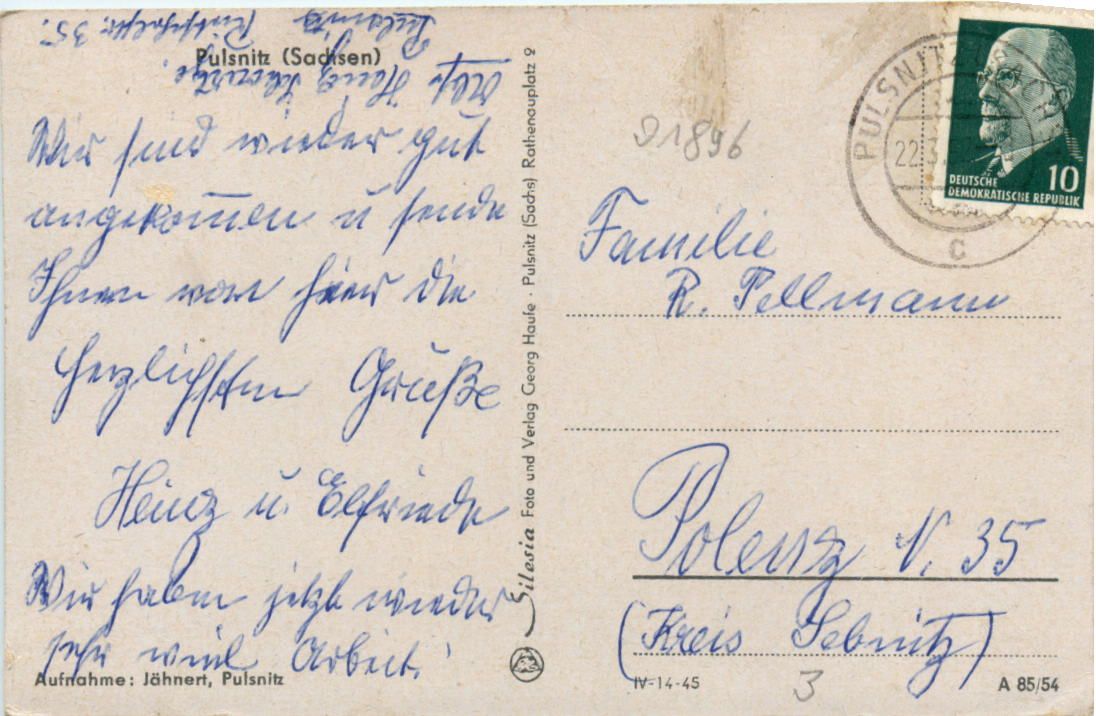 Pulsnitz (Sachsen)
Wir sind wieder gut
angekommen u sende
Ihnen von hier die
herzlichsten Grüße
Heinz u. Elfriede
Wir haben jetzt wieder
sehr viel Arbeit!
Aufnahme: Jähnert, Pulsnitz
Abs. Heinz
Pulsnitz
35.
Silesia Foto und Verlag Georg Haufe · Pulsnitz (Sachs) Rathenauplatz 2
91896
PULSNITZ
22.3.
c
DEUTSCHE
DEMOKRATISCHE REPUBLIK
10
Familie
R. Pellmann
Polenz N. 35
(Kreis Sebnitz)
IV-14-45
3
A 85/54